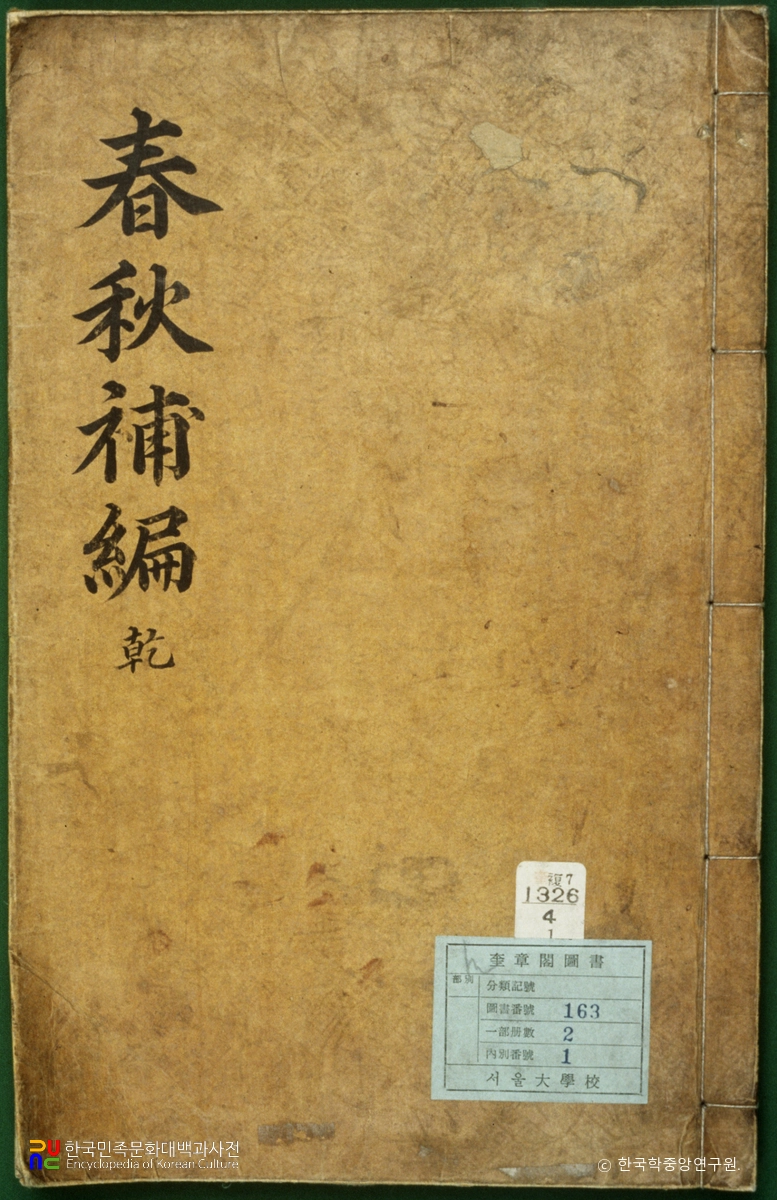 春秋補編
乾
複7
1326
4
1
奎章閣圖書
部別
分類記號
圖書番號 163
一部册數 2
內別番號 1
서울大學校
한국민족문화대백과사전
Encyclopedia of Korean Culture
ⓒ 한국학중앙연구원.